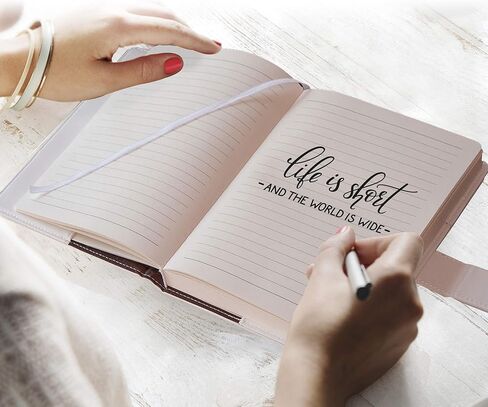 life is short
-AND THE WORLD IS WIDE-